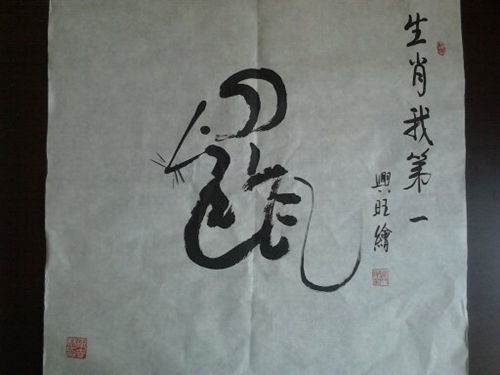 生肖我第一
興旺繪